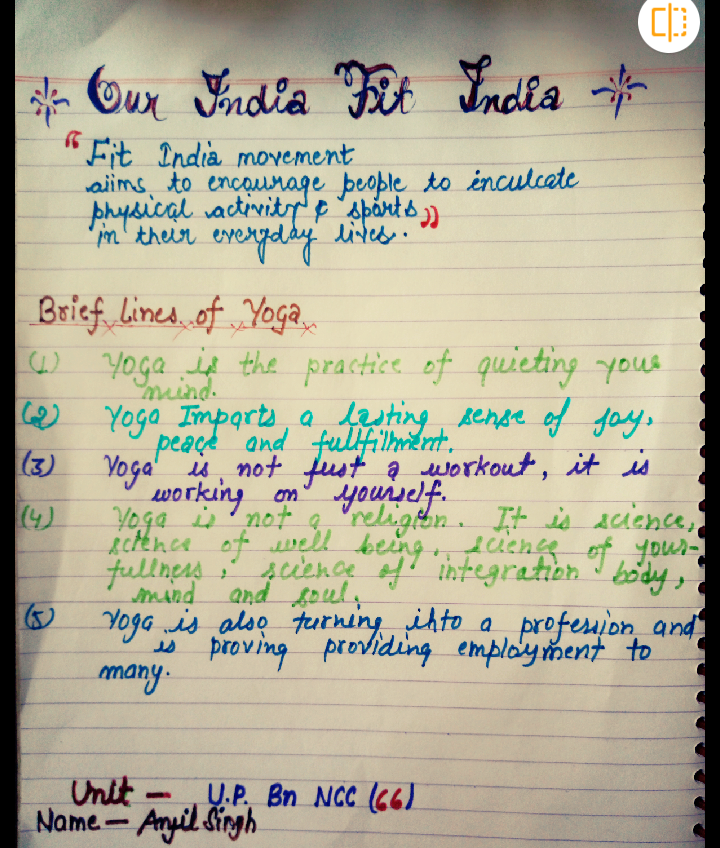 Our India Fit India
“Fit India movement
aiims to encourage people to inculcate
physical activity & sports
in their everyday lives.”
Brief Lines of Yoga
(1) Yoga is the practice of quieting your
mind.
(2) Yoga Imparts a lasting sense of joy,
peace and fullfilment.
(3) Yoga is not just a workout, it is
working on yourself.
(4) Yoga is not a religion. It is science,
science of well being, science of your-
fullness, science of integration body,
mind and soul.
(5) Yoga is also turning into a profession and
is proving providing employment to
many.
Unit – U.P. Bn NCC (66)
Name – Singh